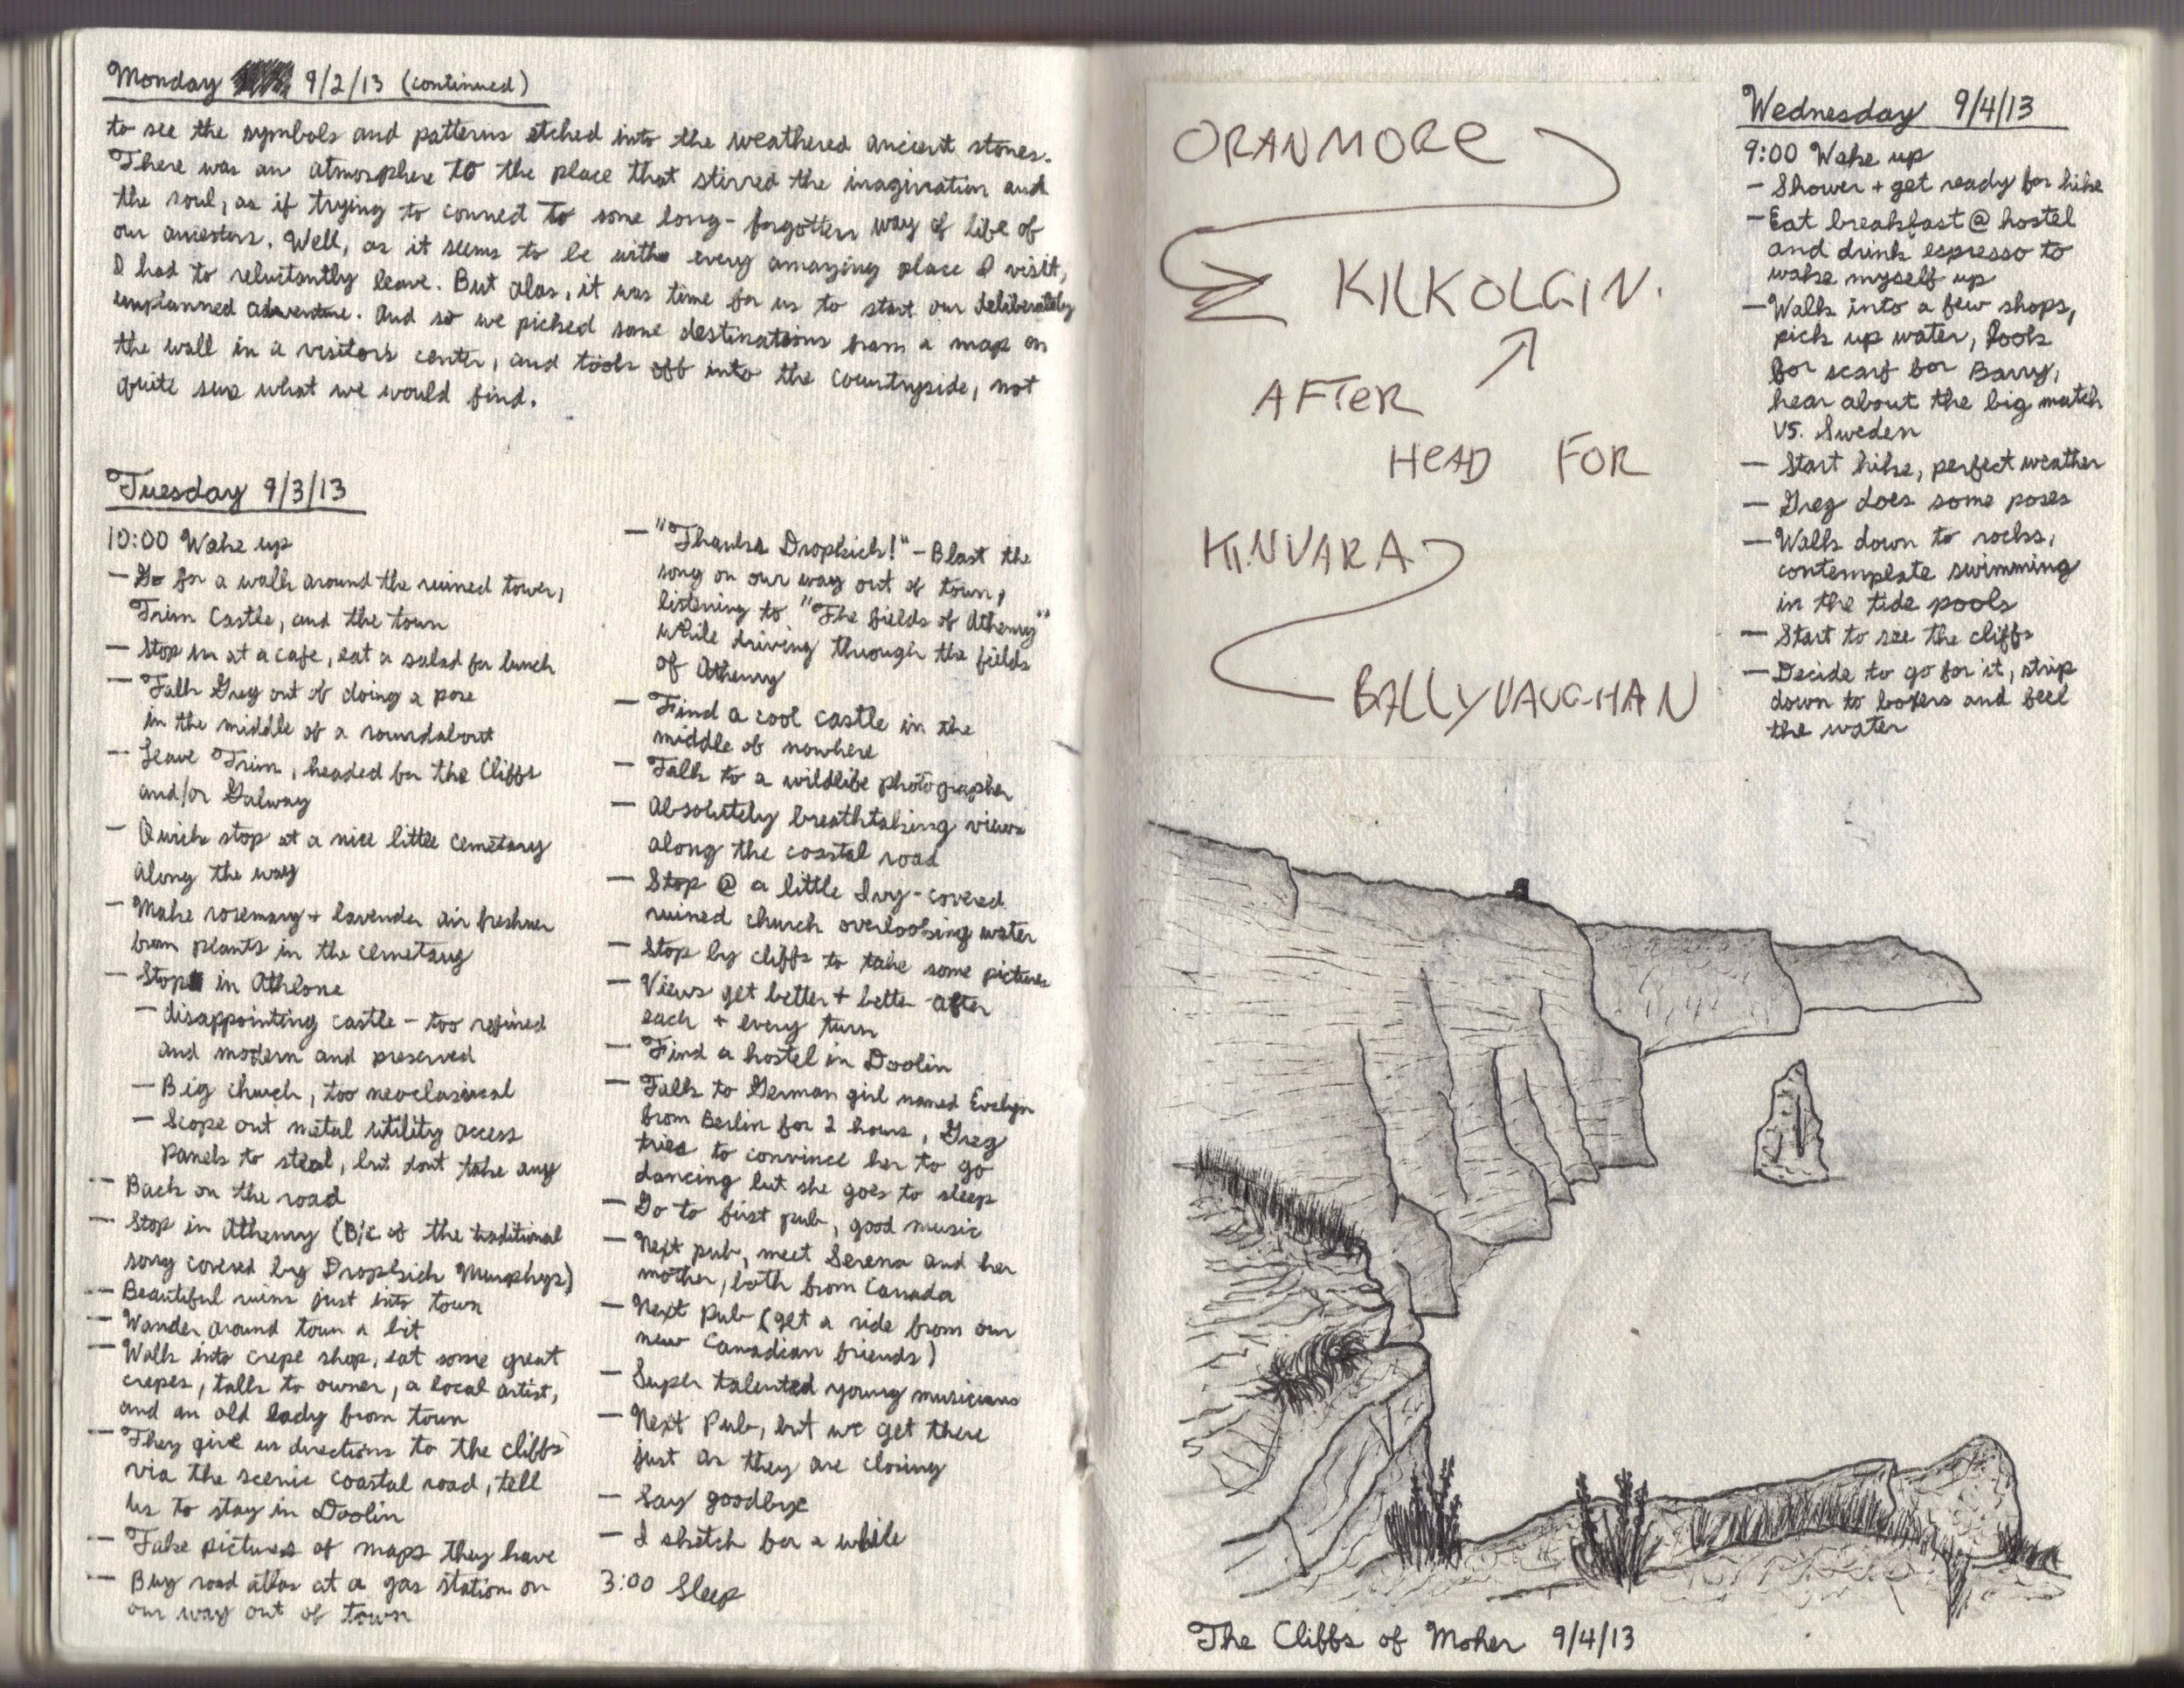 Monday 9/2/13 (continued)
to see the symbols and patterns etched into the weathered ancient stones.
There was an atmosphere to the place that stirred the imagination and
the soul, as if trying to connect to some long-forgotten way of life of
our ancestors. Well, as it seems to be with every amazing place I visit,
I had to reluctantly leave. But alas, it was time for us to start our deliberately
unplanned adventure. And so we picked some destinations from a map on
the wall in a visitor's center, and took off into the countryside, not
quite sure what we would find.
Tuesday 9/3/13
10:00 Wake up
- Go for a walk around the ruined tower,
Trim Castle, and the town
- Stop in at a cafe, eat a salad for lunch
- Talk Greg out of doing a pose
in the middle of a roundabout
- Leave Trim, headed for the Cliffs
and/or Galway
- Quick stop at a nice little cemetary
along the way
- Make rosemary + lavender air freshner
from plants in the cemetary
- Stop in Athlone
- disappointing castle - too refined
and modern and preserved
- Big church, too neoclassical
- Scope out metal utility access
panels to steal, but dont take any
- Back on the road
- Stop in Athenry (B/c of the traditional
song covered by Dropkick Murphys)
- Beautiful ruins just into town
- Wander around town a bit
- Walk into crepe shop, eat some great
crepes, talk to owner, a local artist,
and an old lady from town
- They give us directions to the cliffs
via the scenic coastal road, tell
us to stay in Doolin
- Take pictures of maps they have
- Buy road atlas at a gas station on
our way out of town
- "Thanks Dropkick!" - Blast the
song on our way out of town,
listening to "The fields of Athenry"
while driving through the fields
of Athenry
- Find a cool castle in the
middle of nowhere
- Talk to a wildlife photographer
- Absolutely breathtaking views
along the coastal road
- Stop @ a little Ivy-covered
ruined church overlooking water
- Stop by cliffs to take some pictures
- Views get better + better after
each + every turn
- Find a hostel in Doolin
- Talk to German girl named Evelyn
from Berlin for 2 hours, Greg
tries to convince her to go
dancing but she goes to sleep
- Go to first pub, good music
- Next pub, meet Serena and her
mother, both from Canada
- Next Pub (get a ride from our
new Canadian friends)
- Super talented young musicians
- Next Pub, but we get there
just as they are closing
- Say goodbye
- I sketch for a while
3:00 Sleep
ORANMORE
KILKOLGIN.
AFTER
HEAD FOR
KINVARA
BALLYVAUGHAN
Wednesday 9/4/13
9:00 Wake up
- Shower + get ready for hike
- Eat breakfast @ hostel
and drink espresso to
wake myself up
- Walk into a few shops,
pick up water, look
for scarf for Barry,
hear about the big match
vs. Sweden
- Start hike, perfect weather
- Greg does some poses
- Walk down to rocks,
contemplate swimming
in the tide pools
- Start to see the cliffs
- Decide to go for it, strip
down to boxers and feel
the water
The Cliffs of Moher 9/4/13